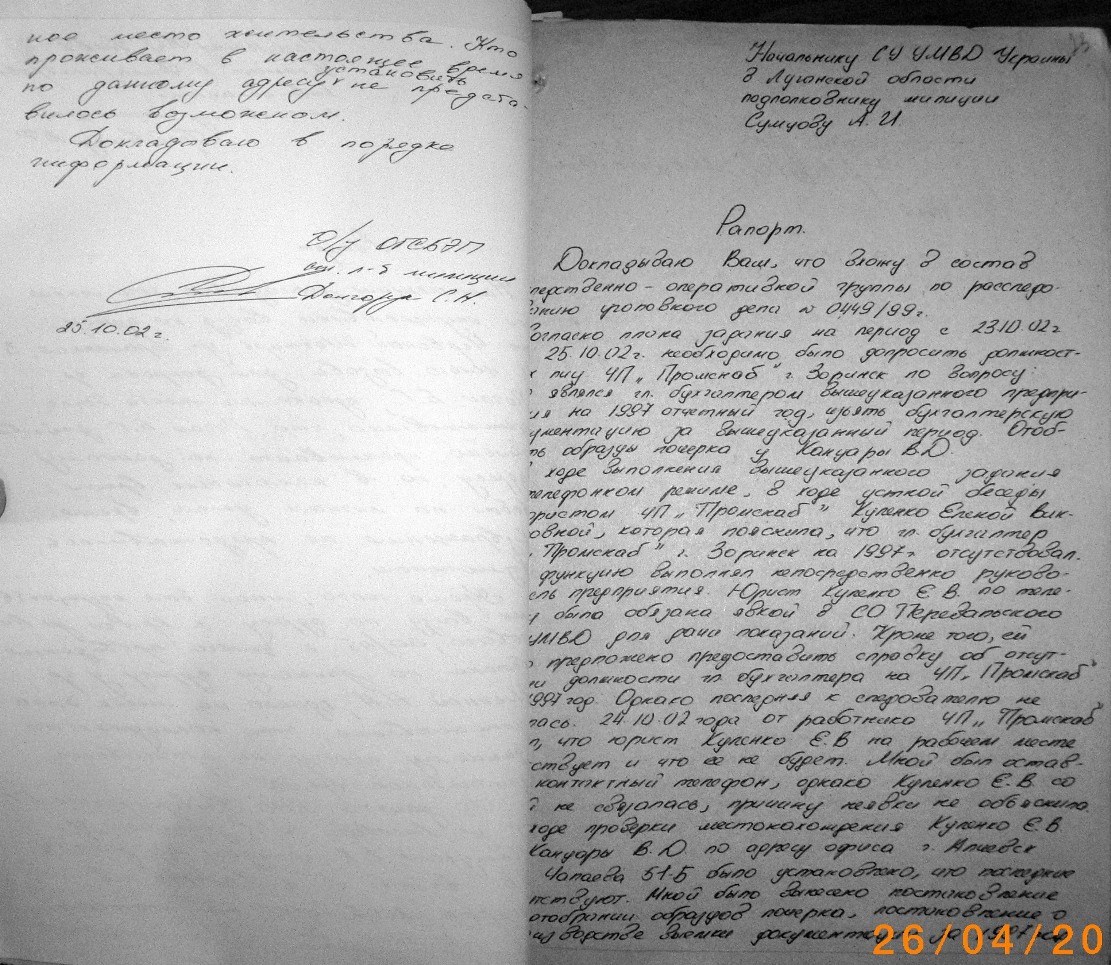 ное место жительства. Кто
проживает в настоящее время
установить
по данному адресу не предста-
вилось возможном.
Докладоваю в порядке
информации.
О/у ОГСБЭП
ст. л-т милиции
С.Н.
25.10.02г.
Начальнику СУ УМВД Украины
в Луганской области
подполковнику милиции
Сумцову А.И.
Рапорт.
Докладываю Вам, что вхожу в состав
следственно-оперативной группы по расследо-
ванию уголовного дела № 0449/99г.
огласно плана задания на период с 23.10.02г
25.10.02г. необходимо было допросить должност-
х лиц ЧП „Промснаб" г. Зоринск по вопросу:
о являлся гл. бухгалтером вышеуказанного предпри-
ия на 1997 отчетный год, изъять бухгалтерскую
ументацию за вышеуказанный период. Отоб-
ть образцы почерка у Канцары В.D.
ходе выполнения вышеуказанного задания
телефонном режиме, в ходе устной беседы
юристом ЧП „Промснаб" Куленко Еленой Вик-
овной, которая пояснила, что гл. бухгалтер
„Промснаб" г. Зоринск на 1997г отсутствовал.
функцию выполнял непосредственно руково-
ель предприятия. Юрист Куленко Е.В. по теле-
у была обязана явкой в СО Перевальского
УМВD для дачи показаний. Кроме того, ей
о предложено предоставить справку об отсут-
ии должности гл. бухгалтера на ЧП „Промснаб"
1997 год. Однако последняя к следователю не
лась. 24.10.02 года от работника ЧП „Промснаб"
л, что юрист Куленко Е.В на рабочем месте
ствует и что ее не будет. Мной был остав-
контактный телефон, однако Куленко Е.В. со
й не связалась, причину неявки не объяснила.
ходе проверки местонахождения Куленко Е.В.
Канцары В.D. по адресу офиса г. Алчевск
Чапаева 51-Б было установлено, что последние
тствуют. Мной было вынесено постановление
отобрании образцов почерка, постановление о
изводстве выемки документации за 1997 год
26/04/20